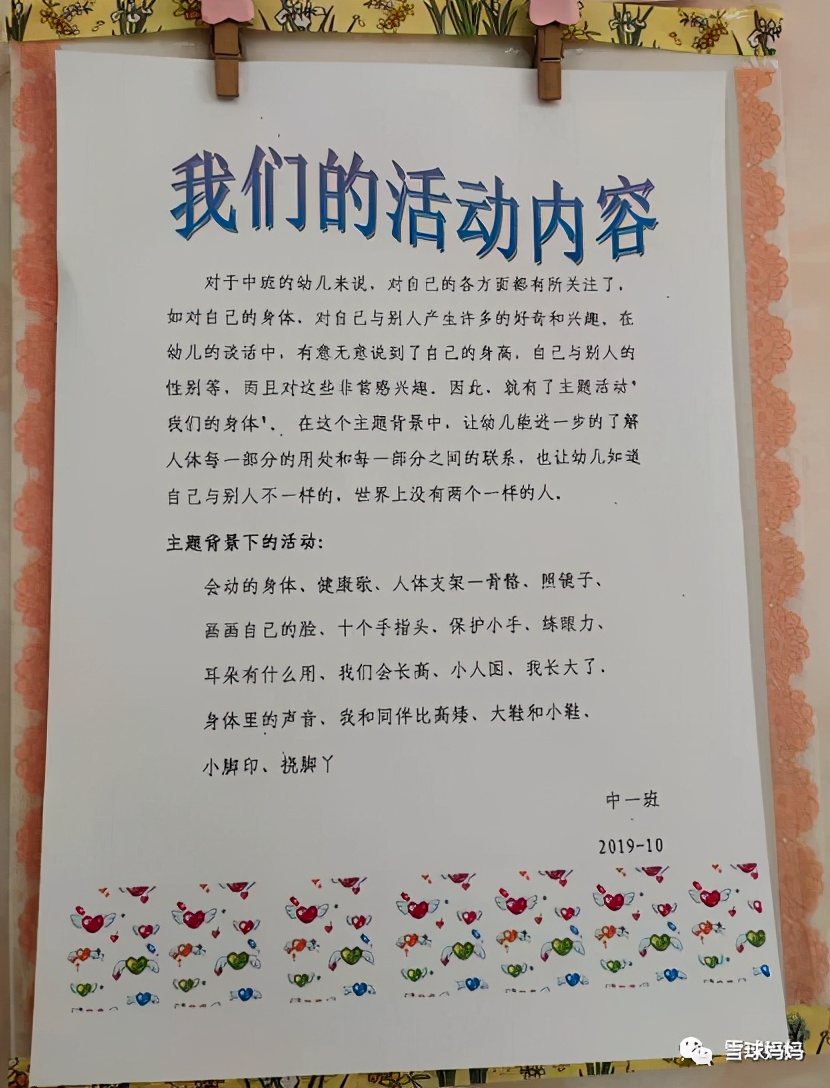 我们的活动内容
对于中班的幼儿来说，对自己的各方面都有所关注了，
如对自己的身体，对自己与别人产生许多的好奇和兴趣，在
幼儿的谈话中，有意无意说到了自己的身高，自己与别人的
性别等，而且对这些非常感兴趣。因此，就有了主题活动'
我们的身体'。 在这个主题背景中，让幼儿能进一步的了解
人体每一部分的用处和每一部分之间的联系，也让幼儿知道
自己与别人不一样的，世界上没有两个一样的人。
主题背景下的活动：
会动的身体、健康歌、人体支架—骨骼、照镜子、
画画自己的脸、十个手指头、保护小手、练眼力、
耳朵有什么用、我们会长高、小人国、我长大了、
身体里的声音、我和同伴比高矮、大鞋和小鞋、
小脚印、挠脚丫
中一班
2019-10
雪球妈妈